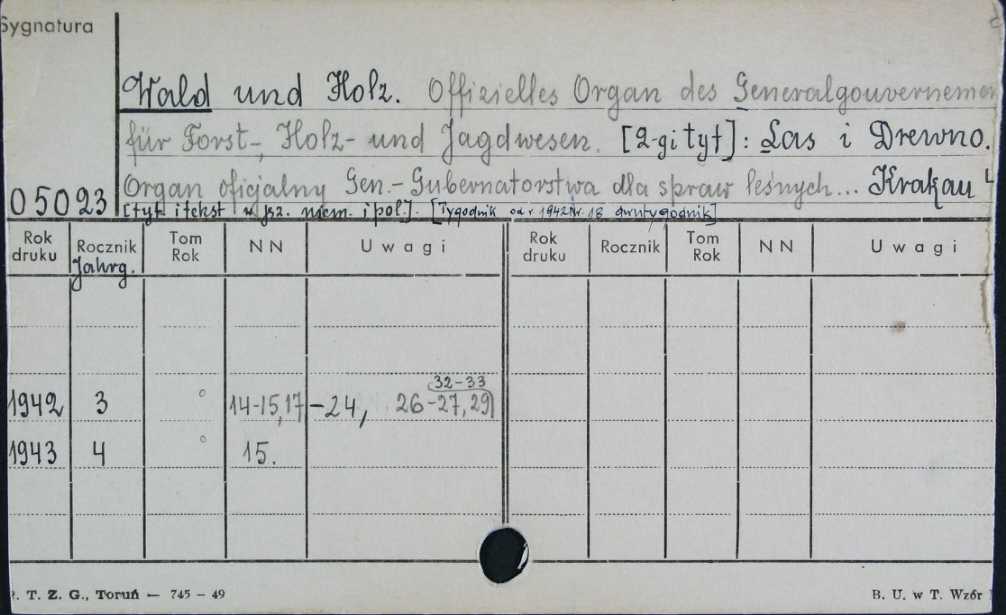 Sygnatura
Wald und Holz. Offizielles Organ des Generalgouvernemen
für Forst-, Holz- und Jagdwesen. [2-gi tyt]: Las i Drewno.
05023 Organ oficjalny Gen.-Gubernatorstwa dla spraw leśnych... Krakau
[tyt. i tekst w jęz. niem. i pol.]. [Tygodnik od r. 1942 Nr. 18 dwutygodnik]
Rok druku Rocznik Tom Rok NN Uwagi Rok druku Rocznik Tom Rok NN Uwagi
Jahrg.
32-33
1942 3 14-15, 17 -24, 26-27, 29
1943 4 15.
. T. Z. G., Toruń — 745 — 49 B. U. w T. Wzór